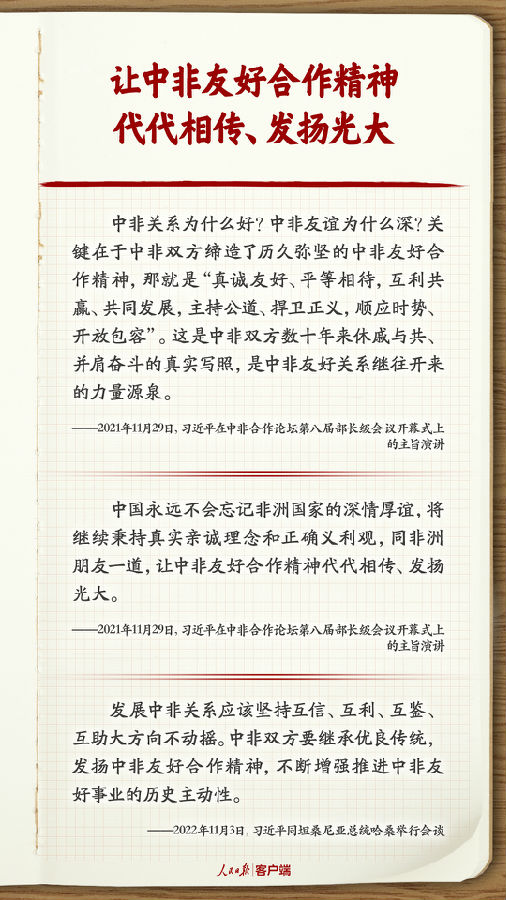 让中非友好合作精神
代代相传、发扬光大
中非关系为什么好？中非友谊为什么深？关
键在于中非双方缔造了历久弥坚的中非友好合
作精神，那就是“真诚友好、平等相待，互利共
赢、共同发展，主持公道、捍卫正义，顺应时势、
开放包容”。这是中非双方数十年来休戚与共、
并肩奋斗的真实写照，是中非友好关系继往开来
的力量源泉。
——2021年11月29日，习近平在中非合作论坛第八届部长级会议开幕式上
的主旨演讲
中国永远不会忘记非洲国家的深情厚谊，将
继续秉持真实亲诚理念和正确义利观，同非洲
朋友一道，让中非友好合作精神代代相传、发扬
光大。
——2021年11月29日，习近平在中非合作论坛第八届部长级会议开幕式上
的主旨演讲
发展中非关系应该坚持互信、互利、互鉴、
互助大方向不动摇。中非双方要继承优良传统，
发扬中非友好合作精神，不断增强推进中非友
好事业的历史主动性。
——2022年11月3日，习近平同坦桑尼亚总统哈桑举行会谈
人民日报 客户端